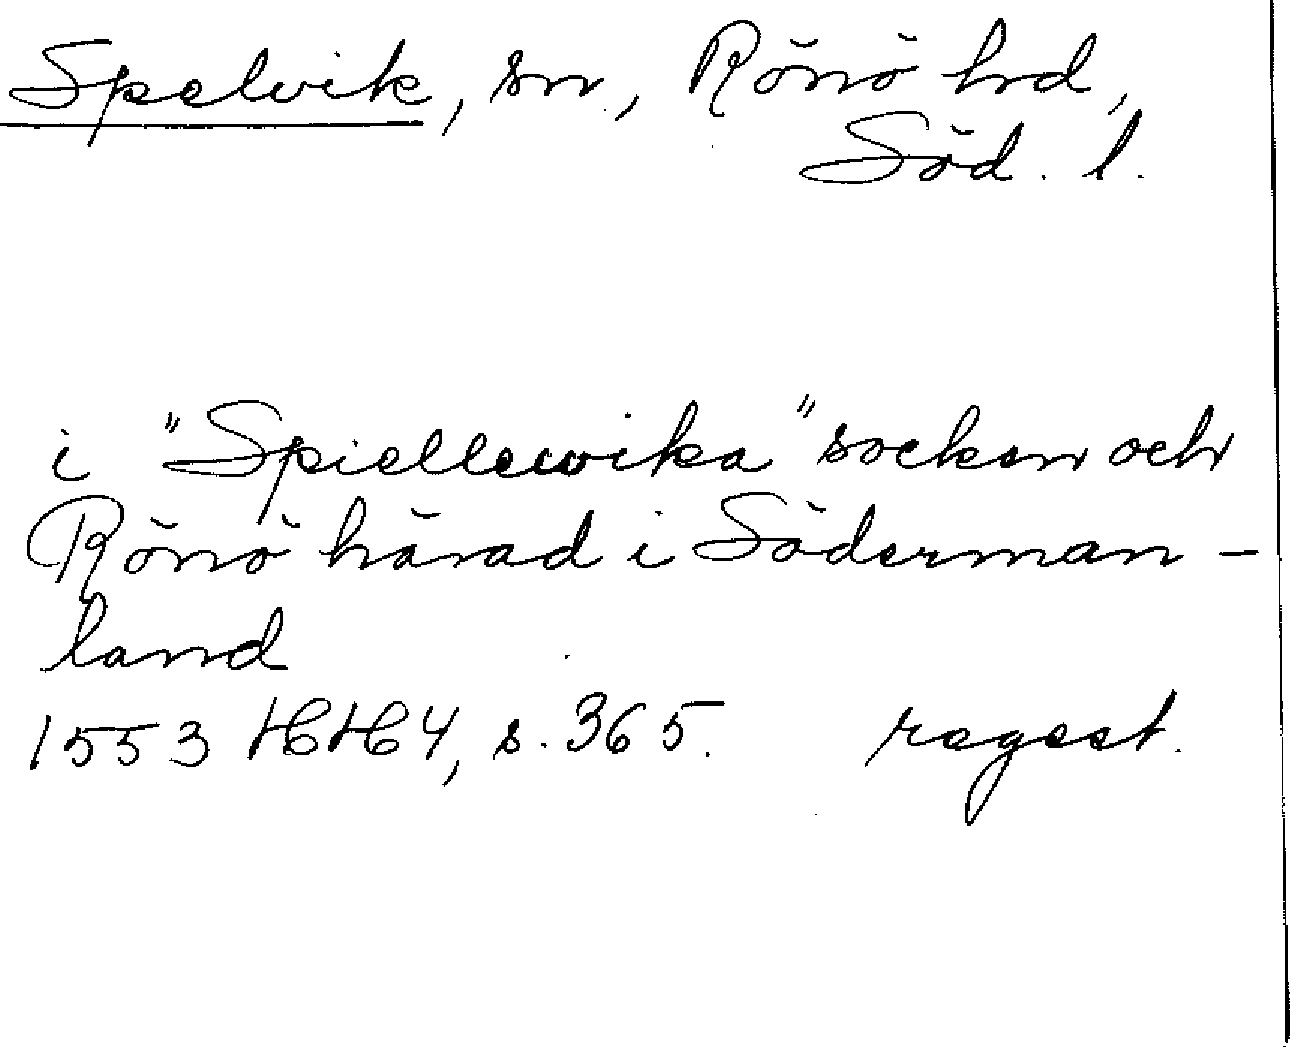 Spelvik, sn., Rönö hd,
Söd. l.
i "Spiellewika" socken och
Rönö härad i Söderman-
land
1553 HH 4, s. 365. regest.